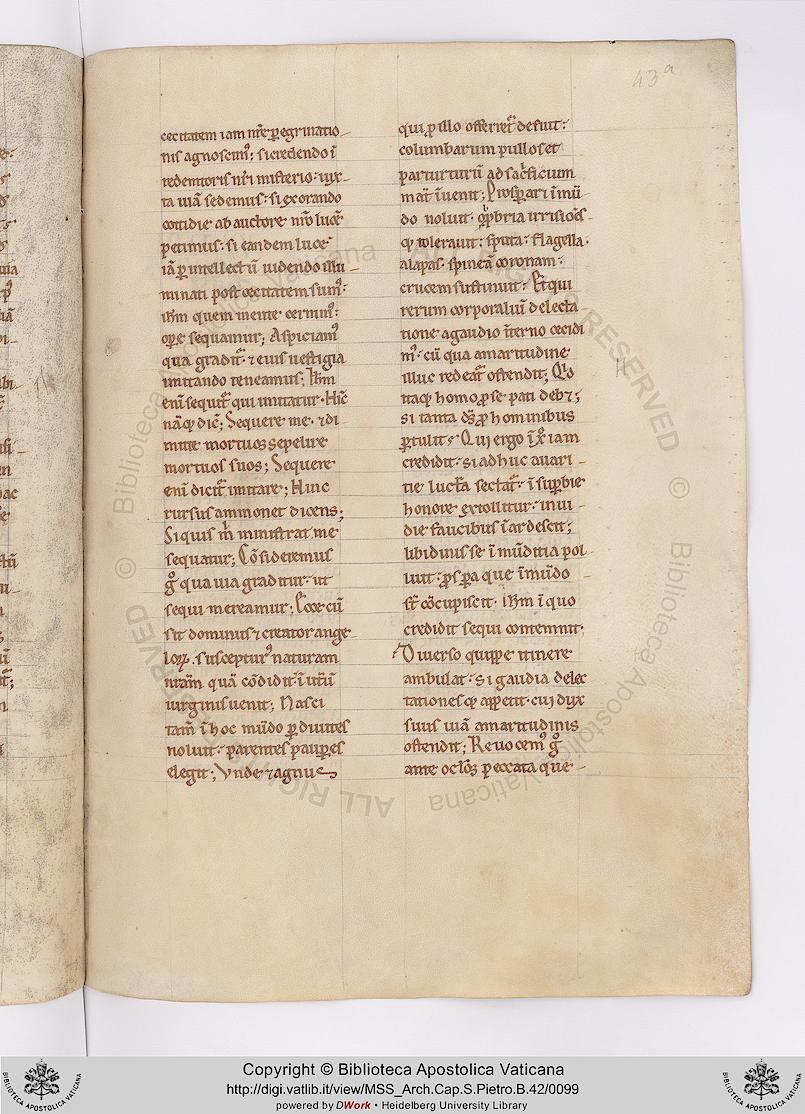 43a
cecitatem iam nr̄e p̲egrinatio
nis agnoscim᷒: si credendo ī
redemtoris nr̄i misterio: iux
ta uiā sedemus: si exorando
cottidie ab auctore nr̄o lucē
petimus: si eandem lucē
iā p̲ intellectū uidendo illu
minati post cecitatem sum᷒:
ihm̄ quem mente cernim᷒:
op̲e sequamur; Aspiciam᷒
qua gradit᷑ ⁊ eius uestigia
imitando teneamus; Ihm̄
eni᷑ sequit᷑ qui imitatur. Hic̄
nāq dic̄; Sequere me. ⁊ di
mitte mortuos sepelire
mortuos suos; Sequere
eni᷑ dicit᷑ imitare; Hinc
rursus ammonet dicens;
Siquis m̄ ministrat me
sequatur; Cōsideremus
gͦ qua uia graditur. ut
sequi mereamur; Ecce cū
sit dominus ⁊ creator ange
loꝝ. suscepturꝰ naturam
nr̄am quā cōdidit ī utūū
uirginis uenit; Nasci
tam̄ ī hoc mūdo p̲ diuites
noluit. parentes paup̲es
elegit; Vnde ⁊ agnus
qui p̲ illo offerret᷑ defuit:
columbarum pullos et
par turturū ad sacrificium
mat̄ īuenit; Prosp̲ari ī mū
do noluit. opp̲bria irrisiōes
q; tolerauit: sputa. flagella.
alapas. spineā coronam.
crucem sustinuit: Et qui
rerum corporaliū delecta
tione a gaudio īterno cecidi
m᷒. cū qua amaritudine
illuc redeat᷑ ostendit; Quo
itaq; homo p̲ se pati deb&;
si tanta d̄s p̲ hominibus
p̲tulit? Qui ergo ī xp̄o iam
credidit. si adhuc auari
tie lucra sectat᷑. ī sup̲bie
honore extollitur. inui
die faucibus īardescit;
libidinis se īmūditia pol
luit. prosp̲a que ī mūdo
st̄ cōcupiscit. ihm̄ ī quo
credidit sequi contemnit.
Diuerso quippe itinere
ambulat. si gaudia delec
tationes q; appetit. cui dux
suus uiā amaritudinis
ostendit; Reuocem᷒ gͦ
ante oclos peccata que
H
Copyright © Biblioteca Apostolica Vaticana
http://digi.vatlib.it/view/MSS_Arch.Cap.S.Pietro.B.42/0099
powered by DWork • Heidelberg University Library
BIBLIOTECA APOSTOLICA VATICANA
BIBLIOTECA APOSTOLICA VATICANA